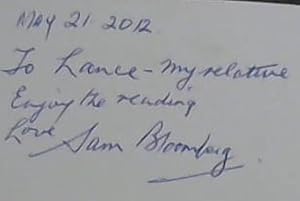 MAY 21 2012
To Lance - My relative
Enjoy the reading
Love Sam Bloomberg